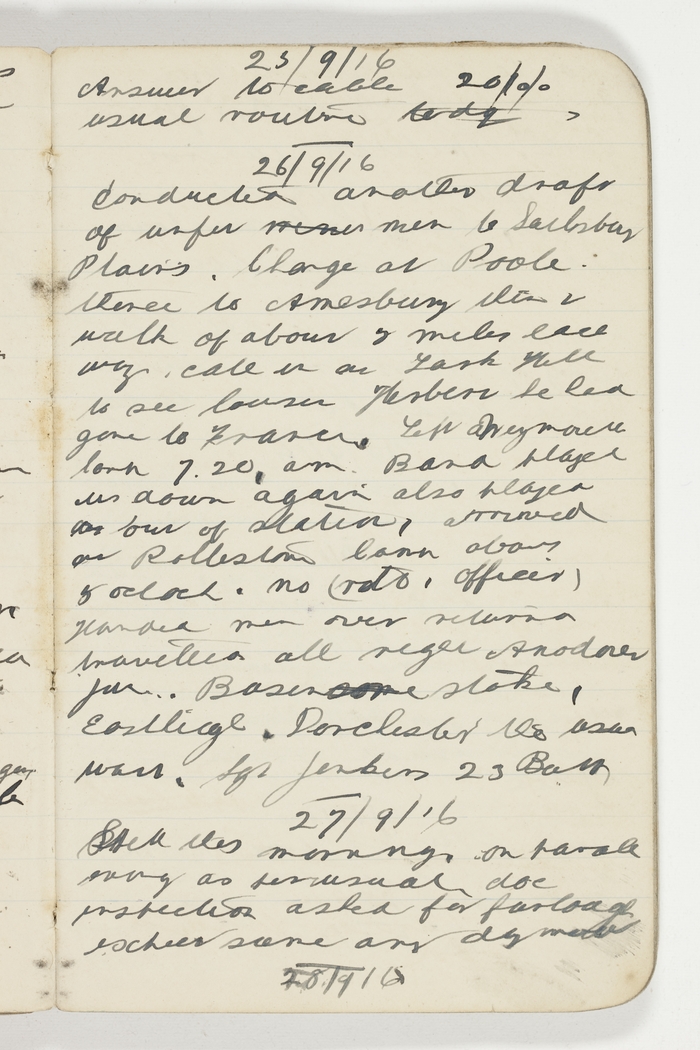 25/9/16
Answer to cable 20/-/-
usual routine today
26/9/16
Conducted another draft
of unfit men to Sailsbury
Plains. Change at Poole.
thence to Amesbury then a
walk of about 7 miles each
way. call in at Lark Hill
to see Herbert he had
gone to France. Left Weymouth
7.20, am. Band played
us down again also played
us out of station, arrived
at Rollestone Camp about
8 oclock. no (rats. officer)
Handed men over returned
travelled all night Andover
Jun.. Basenstoke,
Eastliegh. Dorchester the usual
wait. Sgt Jenkins 23 Batt
27/9/16
Still this morning. on parade
early as per usual. doc
inspection asked for furlough
expect same any day now
28/9/16